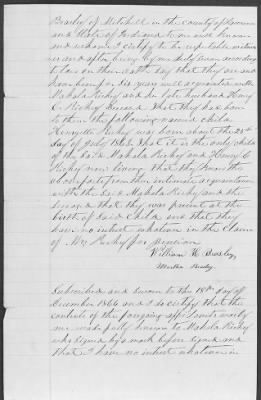 Beasley of Mitchell in the county of Lawrence
and State of Indiana to me well known
and whom I certify to be reputable witnes
ses and after being by me duly sworn according
to law on their oath say that they are and
have been for six years well acquainted with
Mahala Richey and her late husband Henry
C Richey deceased that they has born
to them the following named child
Henryetta Richey was born about the 21st
day of July 1863 that it is the only child
of the said Mahala Richey and Henry C
Richey now living that they know the
above facts from their intimate acquaintance
with the said Mahala Richey and the
deceased that they was present at the
birth of said child and that they
have no interest whatever in the claim
of Mrs Richey for pension
William H. Beasley
Martha Beasley
Subscribed and sworn to this 18th day of
December 1866 and I do certify that the
contents of the foregoing affidavits was by
me made fully known to Mahala Richey
who signed by mark before signed and
that I have no interest whatever in